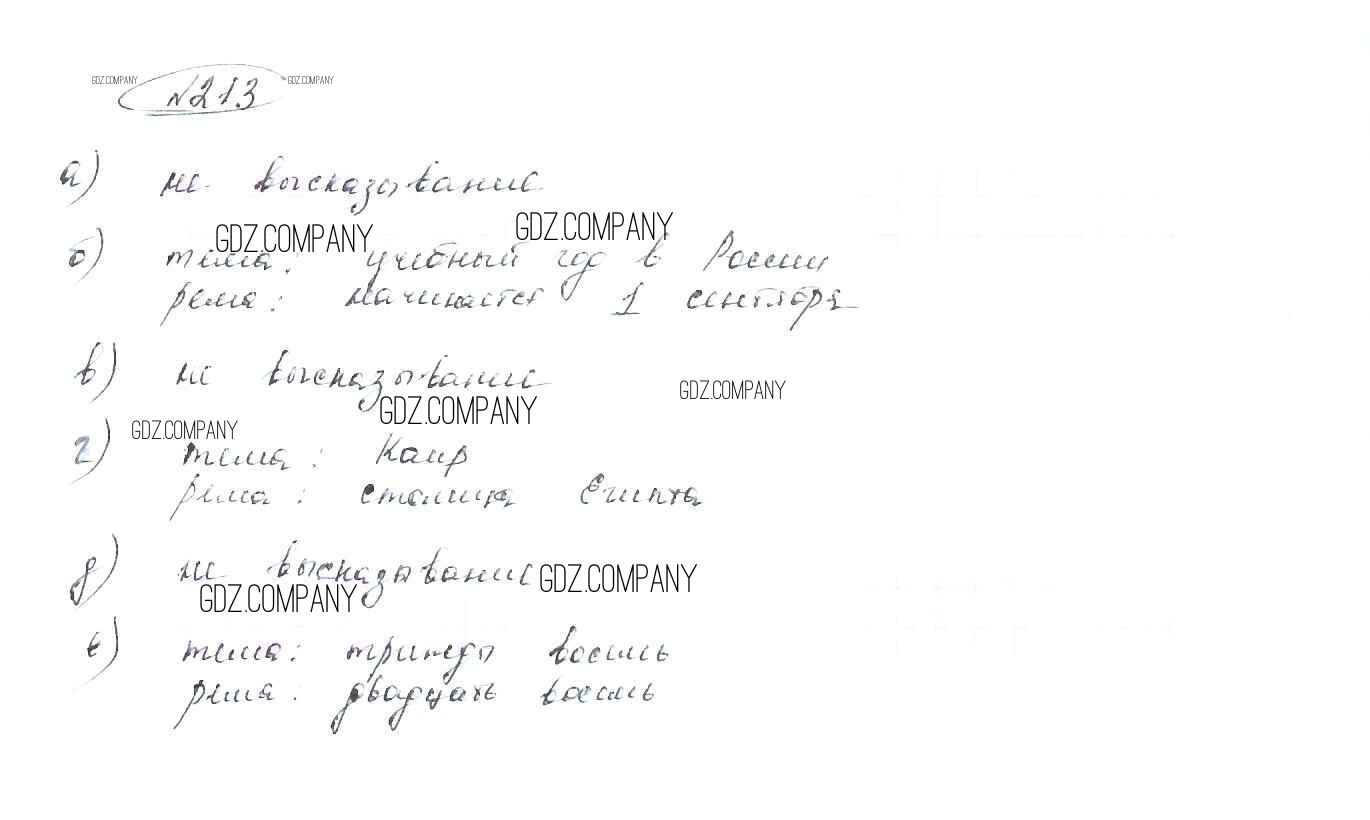 GDZ.COMPANY №213 GDZ.COMPANY
а) не высказывание
GDZ.COMPANY GDZ.COMPANY
б) тема: учебный год в России
рема: начинается 1 сентября
в) не высказывание
GDZ.COMPANY
GDZ.COMPANY
GDZ.COMPANY
г) тема: Каир
рема: столица Египта
д) не высказывание GDZ.COMPANY
GDZ.COMPANY
е) тема: трижды восемь
рема: двадцать восемь